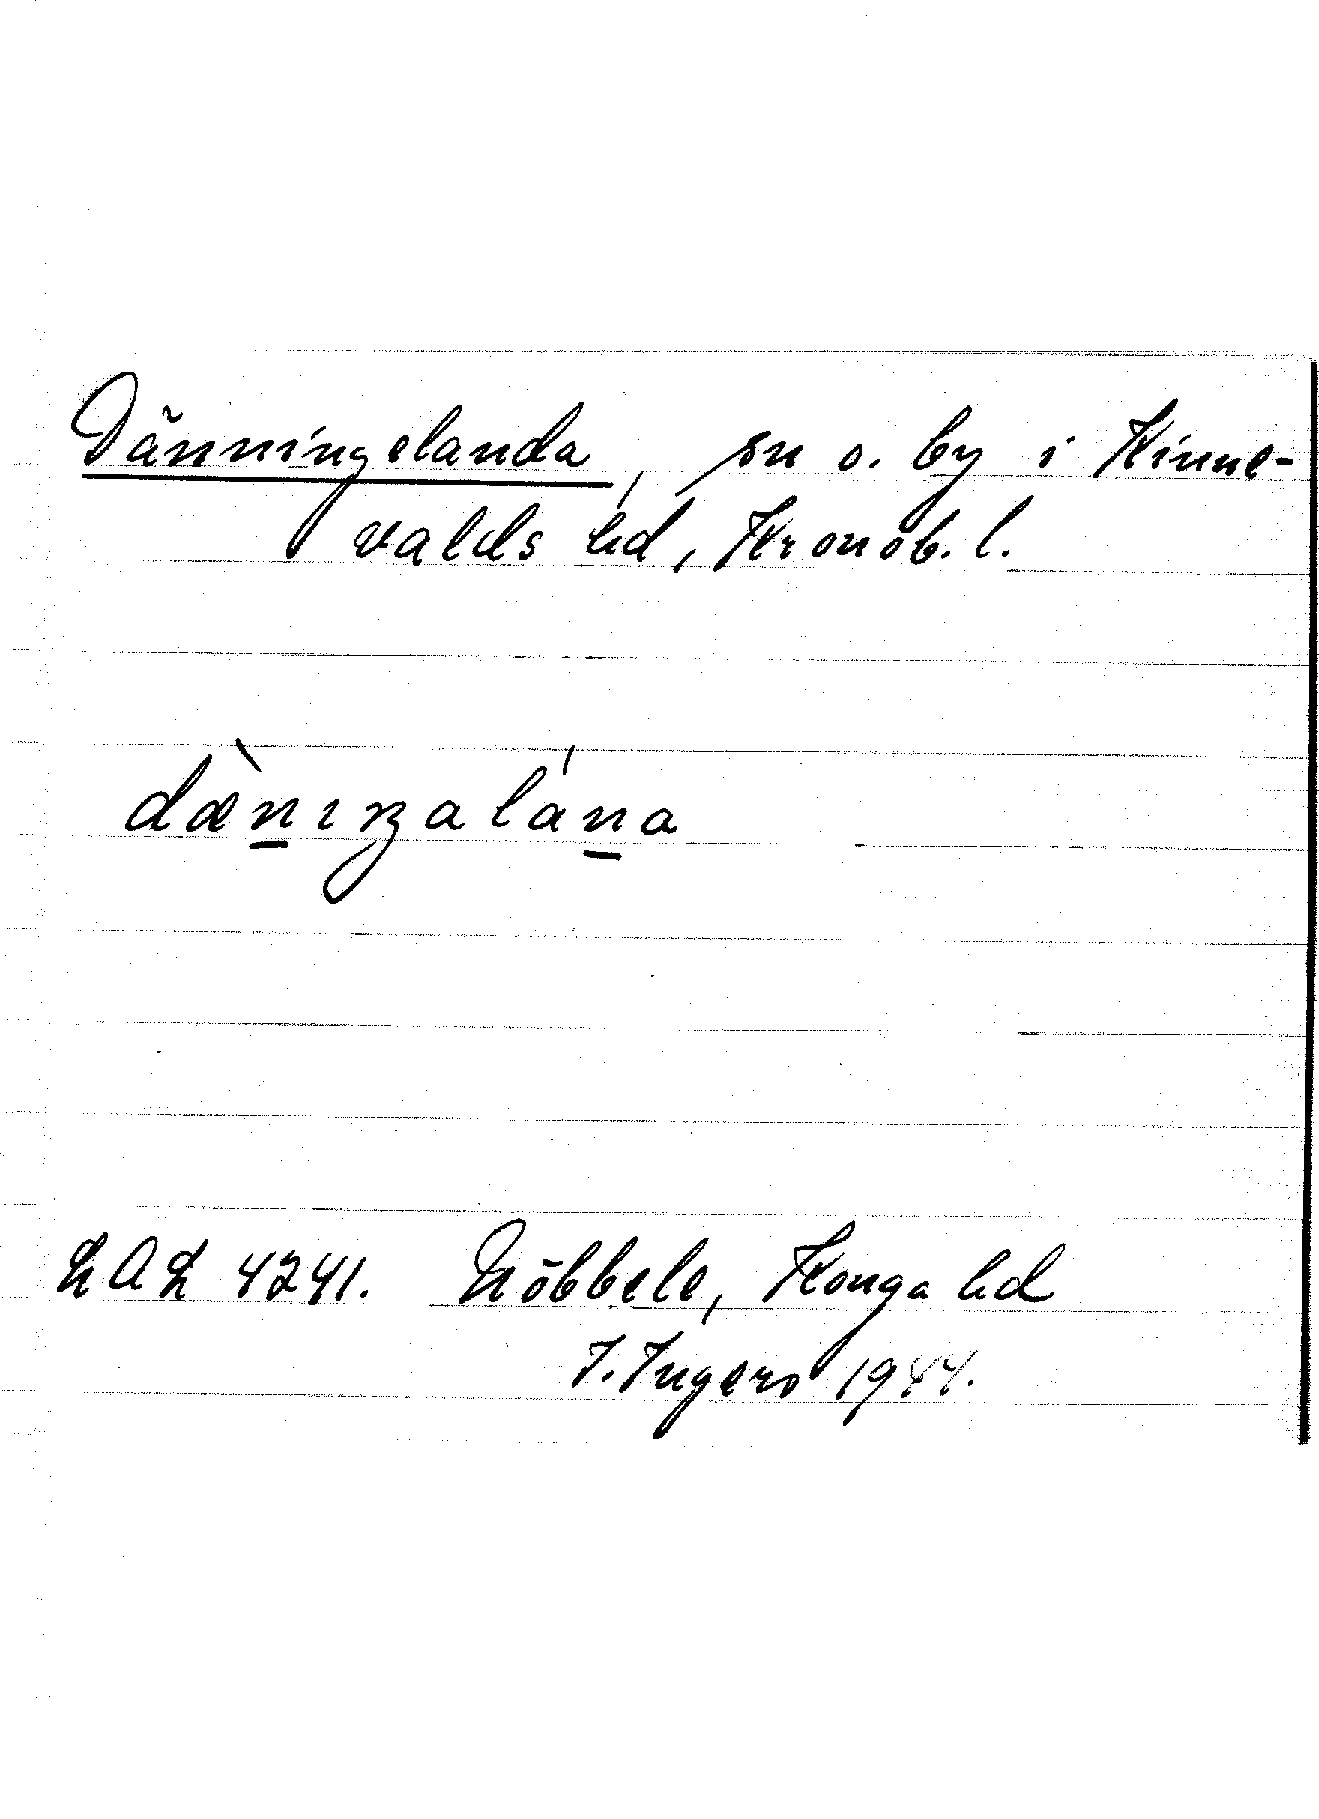 Dänningelanda, sn o. by i Kinne-
valds hd, Kronob. l.
dæ̀nıŋalána
LAL 4241. Nöbbele, Konga hd
I. Ingers 1944.